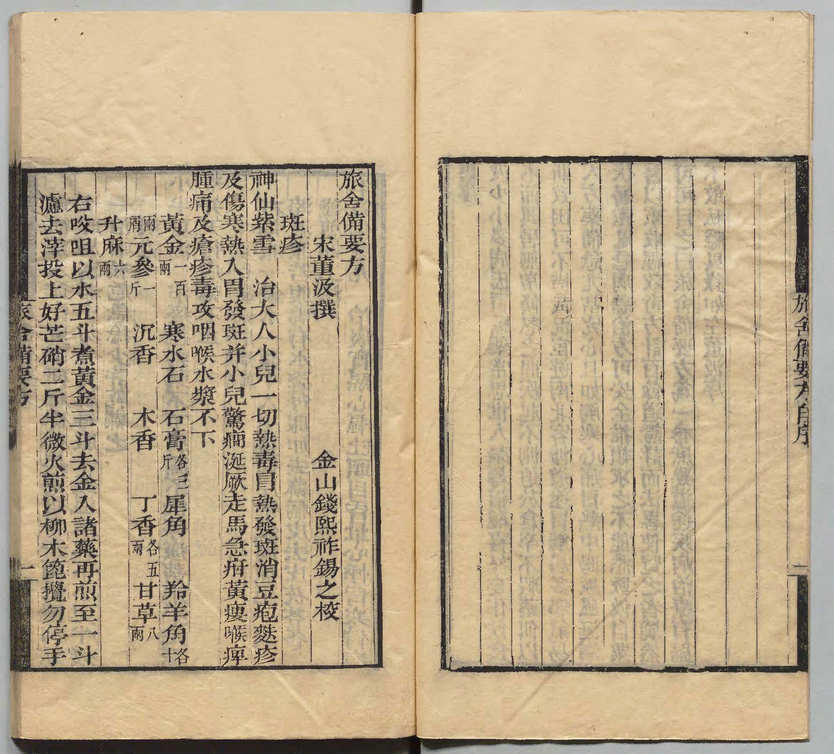 旅舍備要方自序
一
旅舍備要方
宋董汲撰　金山錢熙祚錫之校
斑疹
神仙紫雪　治大人小兒一切熱毒胃熱發斑消豆疱麩疹
及傷寒熱入胃發斑并小兒驚癇涎厥走馬急疳黃瘦喉痺
腫痛及瘡疹毒攻咽喉水漿不下
黃金一百兩　寒水石　石膏各三斤　犀角　羚羊角各十
兩　元參一斤　沉香　木香　丁香各五兩　甘草八兩
升麻六兩
右㕮咀以水五斗煮黃金三斗去金入諸藥再煎至一斗
濾去滓投上好芒硝二斤半微火煎以柳木篦攪勿停手
旅舍備要方
一